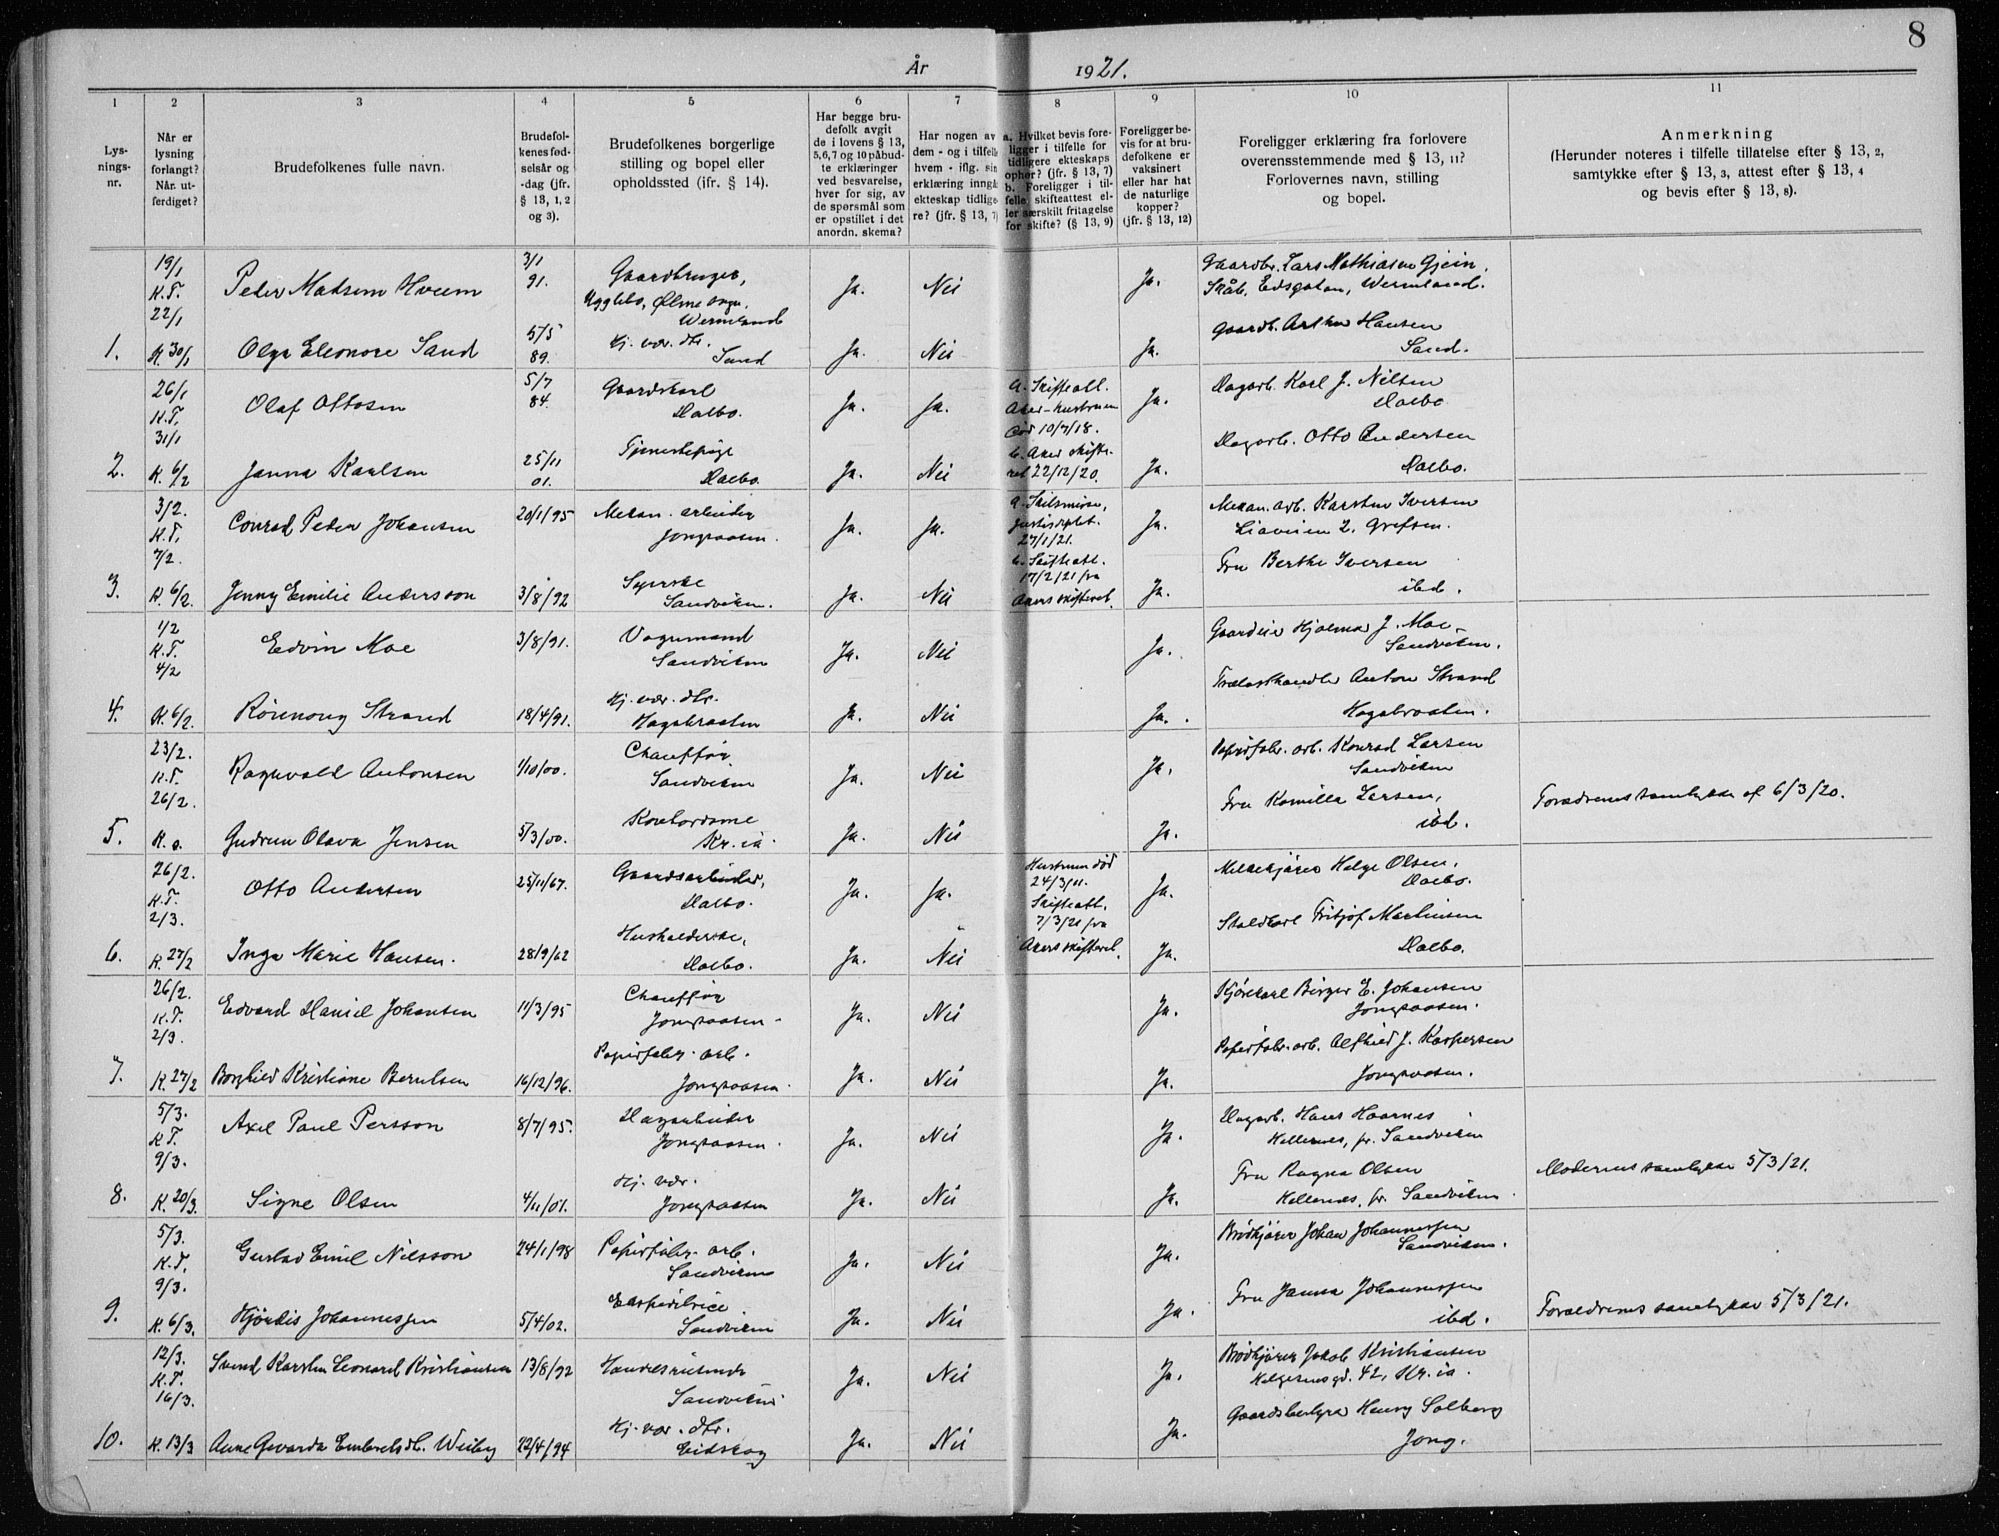 8
År 1921.
1 2 3 4 5 6 7 8 9 10 11
Lys-
nings-
nr.
Når er
lysning
forlangt?
Når. ut-
ferdiget?
Brudefolkenes fulle navn.
Brudefol-
kenes fød-
selsår og
-dag (jfr.
§ 13, 1, 2
og 3).
Brudefolkenes borgerlige
stilling og bopel eller
opholdssted (ifr. § 14).
Har begge bru-
defolk avgit
de i lovens § 13,
5,6,7 og 10 påbud-
te erklæringer
ved besvarelse,
hver for sig, av
de spørsmål som
er opstillet i det
anordn. skema?
Har nogen av
dem - og i tilfelle
hvem - iflg. sin
erklæring inngå
ekteskap tidlige-
re? (jfr. § 13, 7)
a. Hvilket bevis fore-
ligger i tilfelle for
tidligere ekteskaps
ophør? (jfr. § 13, 7)
b. Foreligger i til-
felle skifteattest el-
ler særskilt fritagelse
for skifte? (§ 13, 9)
Foreligger be-
vis for at bru-
defolkene er
vaksinert
eller har hat
de naturlige
kopper?
(jfr. § 13, 12)
Foreligger erklæring fra forlovere
overensstemmende med § 13, 11?
Forlovernes navn, stilling
og bopel.
Anmerkning
(Herunder noteres i tilfelle tillatelse efter § 13, 2,
samtykke efter § 13, 3, attest efter § 13, 4
og bevis efter § 13, 8).
19/1 K.T. 22/1 Peder Madsen Hveem 3/1 91. Gaardbruger, Ølme sogn, Wermland Ja. Nei Ja. Gaardbr. Lars Mathiasen Gjein, Wermland.
1. K. 30/1 Olga Eleonore Sand 5/5 89. Hj. vær. dtr. Sand Ja. Nei Ja. Gaardb. Arthur Hansen Sand.
26/1 K.T. 31/1 Olaf Ottosen 5/7 84. Gaardskarl Dælbo. Ja. Ja. a. Skifteatt. Aker - hustruen død 10/7/18. Ja. Dagarb. Karl J. Nilsen Dælbo
2. K. 6/2 Janna Karlsen 25/11 01. Tjenestepige Dælbo. Ja. Nei b. Aker skifteret 22/12/20. Ja. Dagarb. Otto Andersen Dælbo.
3/2. K.T. 7/2. Conrad Peder Johansen 20/1/95 Mekan. arbeider Jongsaasen. Ja. Ja. a. Skilsmisse, Justisdeptet. 27/1/21. Ja. Mekan. arb. Karsten Iversen Grefsen.
3. K. 6/2. Jenny Emilie Andersson 3/8/92 Syerske Sandviken. Ja. Nei b. Skifteatt. 17/2/21 fra Akers skifteret. Ja. Fru Berthe Iversen ibd.
1/2 K.T. 4/2 Edvin Moe 3/8/91. Vognmand Sandviken Ja. Nei Ja. Gaardeier Hjalmar J. Moe, Sandviken.
4. K. 6/2. Strand 18/4/91. Hj. vær. dtr. Hagabraaten Ja. Nei Ja. Trælasthandler Anton Strand Hagabraaten.
23/2. K.T. 26/2. Ragnvald Antonsen 1/10/00. Chauffør Sandviken Ja. Nei Ja. Papirfabr. arb. Konrad Larsen Sandviken
5. K. o. Gudrun Olava Jensen 5/3/00. Kontordame Kr.ia Ja. Nei Ja. Fru Kamilla Larsen, ibd. Forældrenes samtykke af 6/3/20.
26/2. K.T. 2/3. Otto Andersen 25/11/67. Gaardsarbeider, Dælbo. Ja. Ja. Hustruen død 24/3/11. Ja. Melkekjører Helge Olsen, Dælbo.
6. K. 27/2 Inga Marie Hansen. 28/9/62 Husholderske, Dælbo. Ja. Nei Skifteatt. 7/3/21 fra Akers skifteret. Ja. Staldkarl Fritjof Martinsen Dælbo.
26/2. K.T. 2/3. Edvard Daniel Johansen 11/3/95 Chauffør Jongsaasen. Ja. Nei Ja. Kjørekarl Birger E. Johansen Jongsaasen.
7. K. 27/2 Borghild Kristiane Berntsen 16/12/96. Papirfabr. arb. Jongsaasen. Ja. Nei Ja. Papirfabr. arb. Alfhild J. Kaspersen Jongsaasen.
5/3. K.T. 9/3. Axel Paul Persson 8/7/95. Dagarbeider Jongsaasen. Ja. Nei Ja. Dagarb. Hans Haarnes Hellernes, pr. Sandviken
8. K. 20/3. Signe Olsen 4/11/01. Hj. vær. Jongsaasen Ja. Nei Ja. Fru Ragna Olsen Hellernes, pr. Sandviken. Moderens samtykke 5/3/21.
5/3. K.T. 9/3. Gustav Emil Nilsson 24/1/98 Papirfabr. arb. Sandviken Ja. Nei Ja. Brødkjører Johan Johannessen Sandviken.
9. K. 6/3. Hjørdis Johannessen 5/4/02. Ekspeditrice. Sandviken Ja. Nei Ja. Fru Janna Johannessen ibd. Forældrenes samtykke 5/3/21.
12/3. K.T. 16/3. Svend Karsten Leonard Kristiansen 13/8/92 Handelsreisende Sandviken. Ja. Nei Ja. Brødkjører Jakob Kristiansen Helgesensgd. 42, Kr.ia.
10. K. 13/3 Anne Gevarda Embretsdt. Weiby 22/4/94 Hj. vær. dtr. Eidskog Ja. Nei Ja. Gaardsbestyrer Henry Solberg Jong.